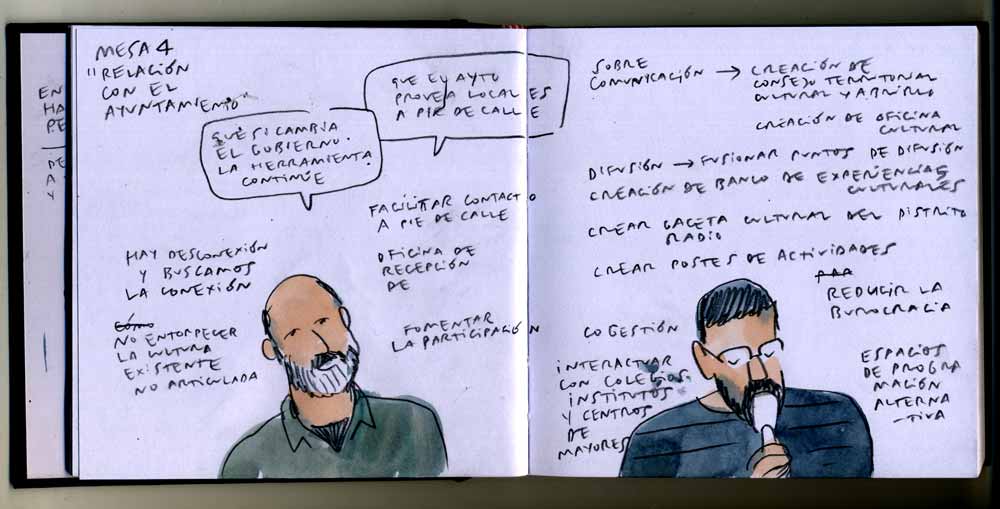 EN
HA
PE
DE
A
Y
MESA 4
"RELACIÓN
CON EL
AYUNTAMIENTO"
QUE SI CAMBIA
EL GOBIERNO.
LA HERRAMIENTA
CONTINÚE
QUE EL AYTO
PROVEA LOCALES
A PIE DE CALLE
FACILITAR CONTACTO
A PIE DE CALLE
HAY DESCONEXIÓN
Y BUSCAMOS
LA CONEXIÓN
OFICINA DE
RECEPCIÓN
DE
CÓMO
NO ENTORPECER
LA CULTURA
EXISTENTE
NO ARTICULADA
FOMENTAR
LA PARTICIPACIÓN
SOBRE
COMUNICACIÓN → CREACIÓN DE
CONSEJO TERRITORIAL
CULTURAL Y ABRIRLO
CREACIÓN DE OFICINA
CULTURAL
DIFUSIÓN → FUSIONAR PUNTOS DE DIFUSIÓN
CREACIÓN DE BANCO DE EXPERIENCIAS
CULTURALES
CREAR GACETA CULTURAL DEL DISTRITO
RADIO
CREAR POSTES DE ACTIVIDADES
REDUCIR LA
BUROCRACIA
COGESTIÓN
INTERACTUAR
CON COLEGIOS.
INSTITUTOS
Y CENTROS
DE
MAYORES
ESPACIOS
DE PROGRA
MACIÓN
ALTERNA
-TIVA